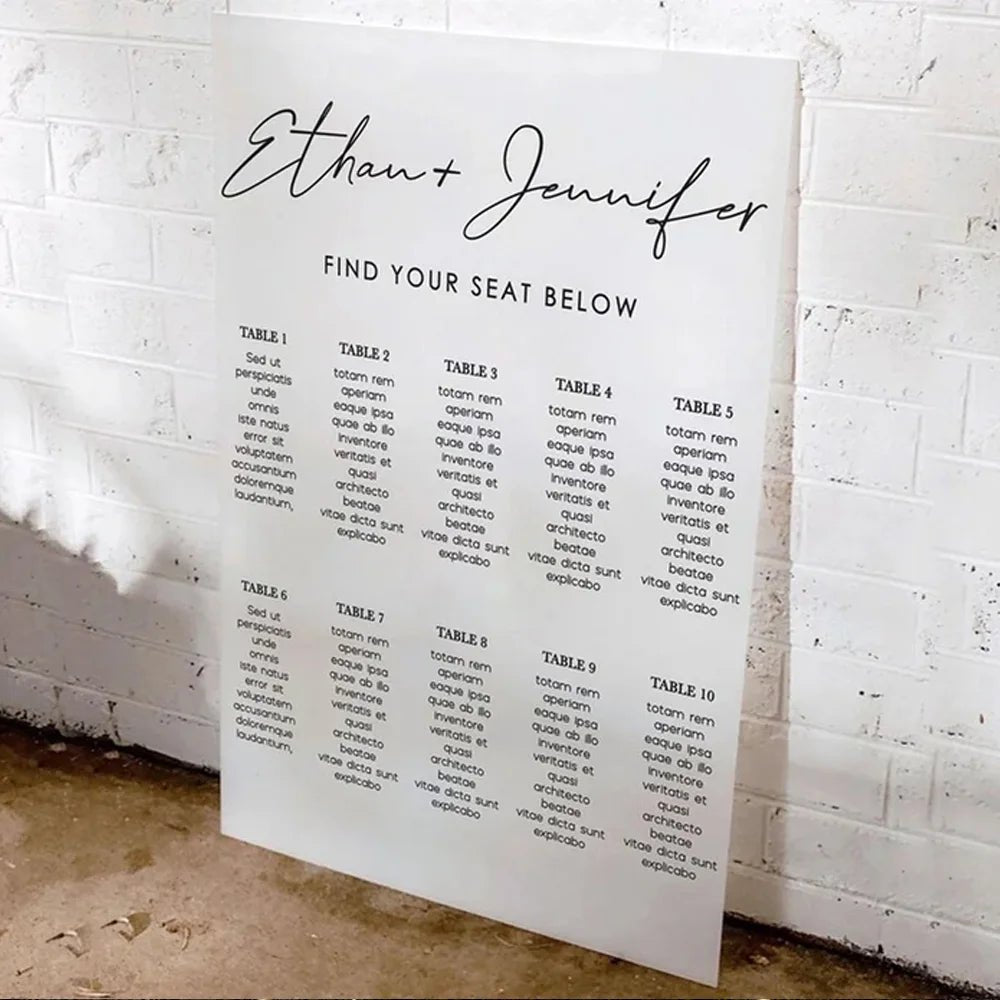 Ethan + Jennifer
FIND YOUR SEAT BELOW
TABLE 1
Sed ut
perspiciatis
unde
omnis
iste natus
error sit
voluptatem
accusantium
doloremque
laudantium,
TABLE 2
totam rem
aperiam
eaque ipsa
quae ab illo
inventore
veritatis et
quasi
architecto
beatae
vitae dicta sunt
explicabo
TABLE 3
totam rem
aperiam
eaque ipsa
quae ab illo
inventore
veritatis et
quasi
architecto
beatae
vitae dicta sunt
explicabo
TABLE 4
totam rem
aperiam
eaque ipsa
quae ab illo
inventore
veritatis et
quasi
architecto
beatae
vitae dicta sunt
explicabo
TABLE 5
totam rem
aperiam
eaque ipsa
quae ab illo
inventore
veritatis et
quasi
architecto
beatae
vitae dicta sunt
explicabo
TABLE 6
Sed ut
perspiciatis
unde
omnis
iste natus
error sit
voluptatem
accusantium
doloremque
laudantium,
TABLE 7
totam rem
aperiam
eaque ipsa
quae ab illo
inventore
veritatis et
quasi
architecto
beatae
vitae dicta sunt
explicabo
TABLE 8
totam rem
aperiam
eaque ipsa
quae ab illo
inventore
veritatis et
quasi
architecto
beatae
vitae dicta sunt
explicabo
TABLE 9
totam rem
aperiam
eaque ipsa
quae ab illo
inventore
veritatis et
quasi
architecto
beatae
vitae dicta sunt
explicabo
TABLE 10
totam rem
aperiam
eaque ipsa
quae ab illo
inventore
veritatis et
quasi
architecto
beatae
vitae dicta sunt
explicabo